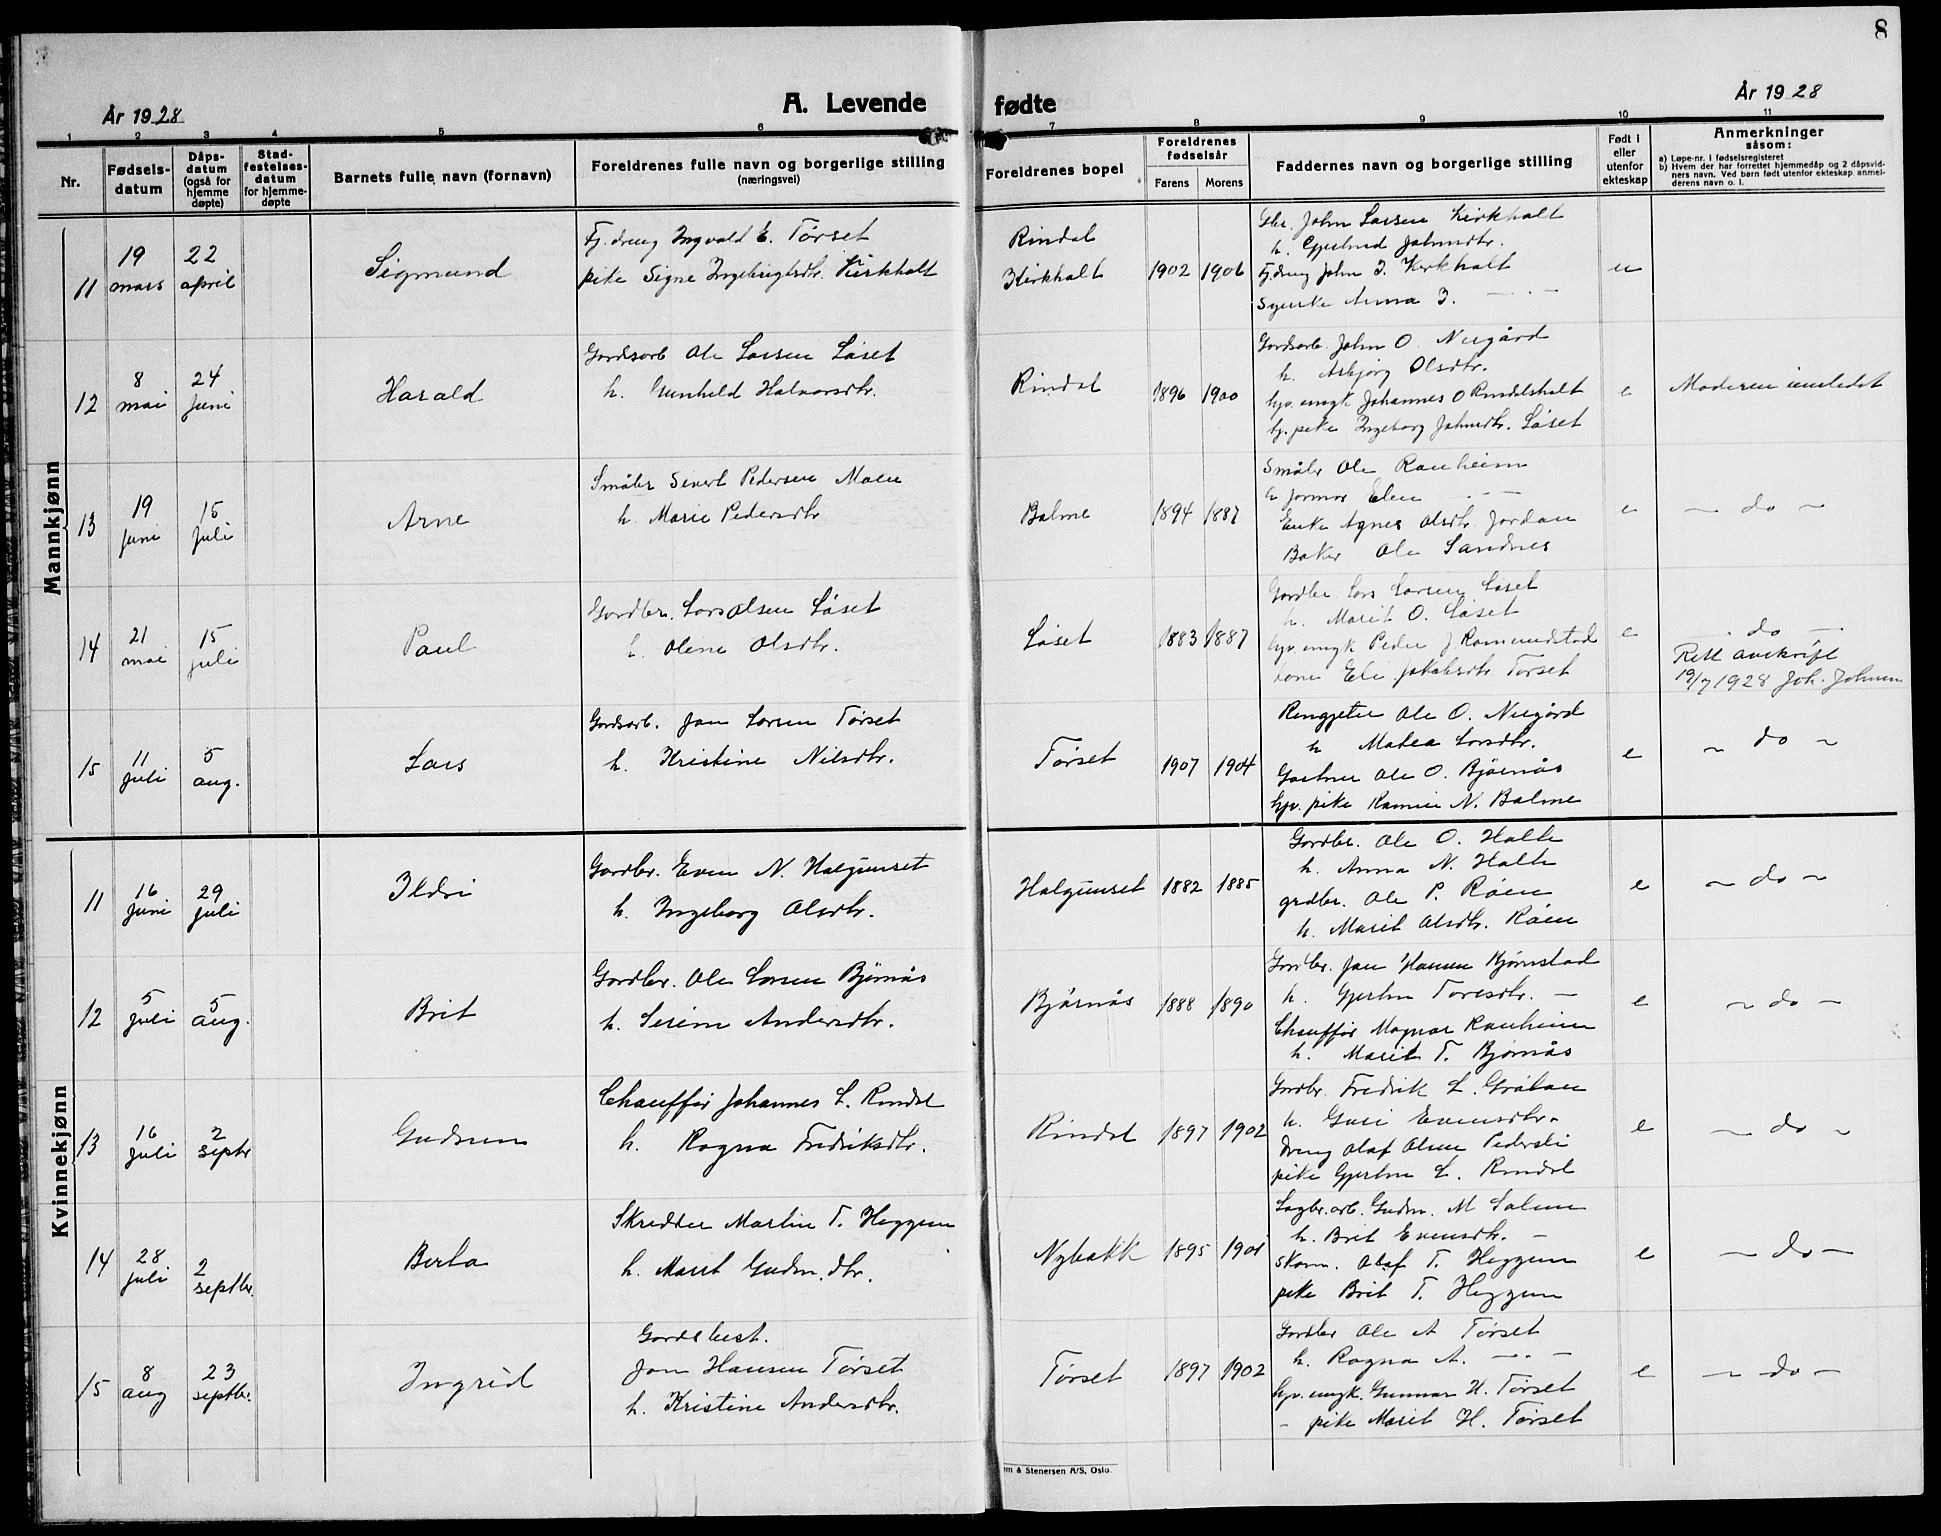 8
År 1928
A. Levende fødte
År 1928
1 2 3 4 5 6 7 8 9 10 11
Nr.
Fødsels-
datum
Dåps-
datum
(også for
hjemme
døpte)
Stad-
festelses-
datum
for hjemme-
døpte
Barnets fulle navn (fornavn)
Foreldrenes fulle navn og borgerlige stilling
(næringsvei)
Foreldrenes bopel
Foreldrenes
fødselsår
Farens Morens
Faddernes navn og borgerlige stilling
Født i
eller
utenfor
ekteskap
Anmerkninger
såsom:
a) Løpe-nr. i fødselsregisteret
b) Hvem der har forrettet hjemmedåp og 2 dåpsvid-
ners navn. Ved barn født utenfor ekteskap anmel-
derens navn o. l.
Mannkjønn
11
19
mars
22
april
Sigmund
Tj. dreng Ingvald E. Tørset
pike Signe Ingebrigtsdtr. Kirkholt
Rindal
Kirkholt
1902 1906
Gbr. John Larsen Kirkholt
h. Gjertrud Johnsdtr.
Tj. dreng John I. Kirkholt
Anna I. — " —
u
12
8
mai
24
juni
Harald
Gardsarb Ole Larsen Løset
h. Gunhild Halvorsdtr.
Rindal
1896 1900
Gardsarb. John O. Nergård
h. Asbjørg Olsdtr.
hjv. ungk Johannes O Rindalsholt
tj. pike Ingeborg Johnsdtr. Løset
e
Moderen innledet
13
19
juni
15
juli
Arne
Småbr Sivert Pedersen Moen
h. Marie Pedersdtr
Bolme
1894 1887
Småbr Ole Ranheim
h jormor Elen — " —
Enke Agnes Olsdtr. Jordan
Baker Ole Sandnes
e
— do —
14
21
mai
15
juli
Paul
Gardbr. Lars Olsen Løset
h. Olene Olsdtr.
Løset
1883 1887
Gardbr. Lars Larsen Løset
h. Marit O. Løset
hjv. ungk Peder J. Romundstad
kone Eli Jakobsdtr Tørset
e
— do —
Rett avskrift
19/7 1928 Joh. Johnsen
15
11
juli
5
aug.
Lars
Gardsarb. Jon Larsen Tørset
h. Kristine Nilsdtr.
Tørset
1907 1904
Ole O. Nergård
h Malea Larsdtr.
Gartner Ole O. Bjørnås
hjv. pike N. Bolme
e
— do —
Kvinnekjønn
11
16
juni
29
juli
Ildri
Gardbr. Even N. Halgunset
h. Ingeborg Olsdtr.
Halgunset
1882 1885
Gardbr. Ole O. Halle
h. Anna N. Halle
grdbr. Ole P. Røen
h. Marit Olsdtr. Røen
e
— do —
12
5
juli
5
aug.
Brit
Gardbr. Ole Larsen Bjørnås
h. Serine Andersdtr.
Bjørnås
1888 1890
Gardbr. Jon Hansen Bjørnstad
h. Gjertine Toresdtr. —
Chauffør Magnar Ranheim
h. Marit T. Bjørnås
e
— do —
13
16
juli
2
septbr
Gudrun
Chauffør Johannes L. Rindal
h. Ragna Fredriksdtr.
Rindal
1897 1902
Gardbr Fredrik L. Gråhau
h. Guri Evensdtr.
Dreng Olaf Olsen Pedersli
pike Gjertine L. Rindal
e
— do —
14
28
juli
2
septbr.
Berta
Skredder Martin T. Heggem
h. Marit Gudm.dtr.
Nybakk
1895 1901
Sagbr.arb. Gudm. M Solem
h. Brit Evensdtr. —
skom. Olaf T. Heggem
pike Brit T. Heggem
e
— do —
15
8
aug
23
septbr.
Ingrid
Gardsbest.
Jon Hansen Tørset
h. Kristine Andersdtr.
Tørset
1897 1902
Gardbr Ole A Tørset
h. Ragna A. — " —
hjv. ungk. Gunnar H. Tørset
— pike Marit H. Tørset
e
— do —
em & Stenersen A/S, Oslo.